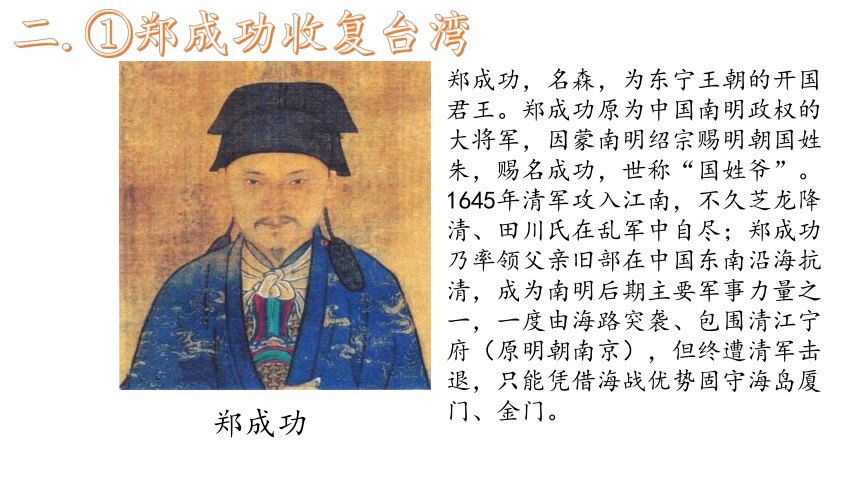 二.①郑成功收复台湾
郑成功，名森，为东宁王朝的开国
君王。郑成功原为中国南明政权的
大将军，因蒙南明绍宗赐明朝国姓
朱，赐名成功，世称“国姓爷”。
1645年清军攻入江南，不久芝龙降
清、田川氏在乱军中自尽；郑成功
乃率领父亲旧部在中国东南沿海抗
清，成为南明后期主要军事力量之
一，一度由海路突袭、包围清江宁
府（原明朝南京），但终遭清军击
退，只能凭借海战优势固守海岛厦
门、金门。
郑成功